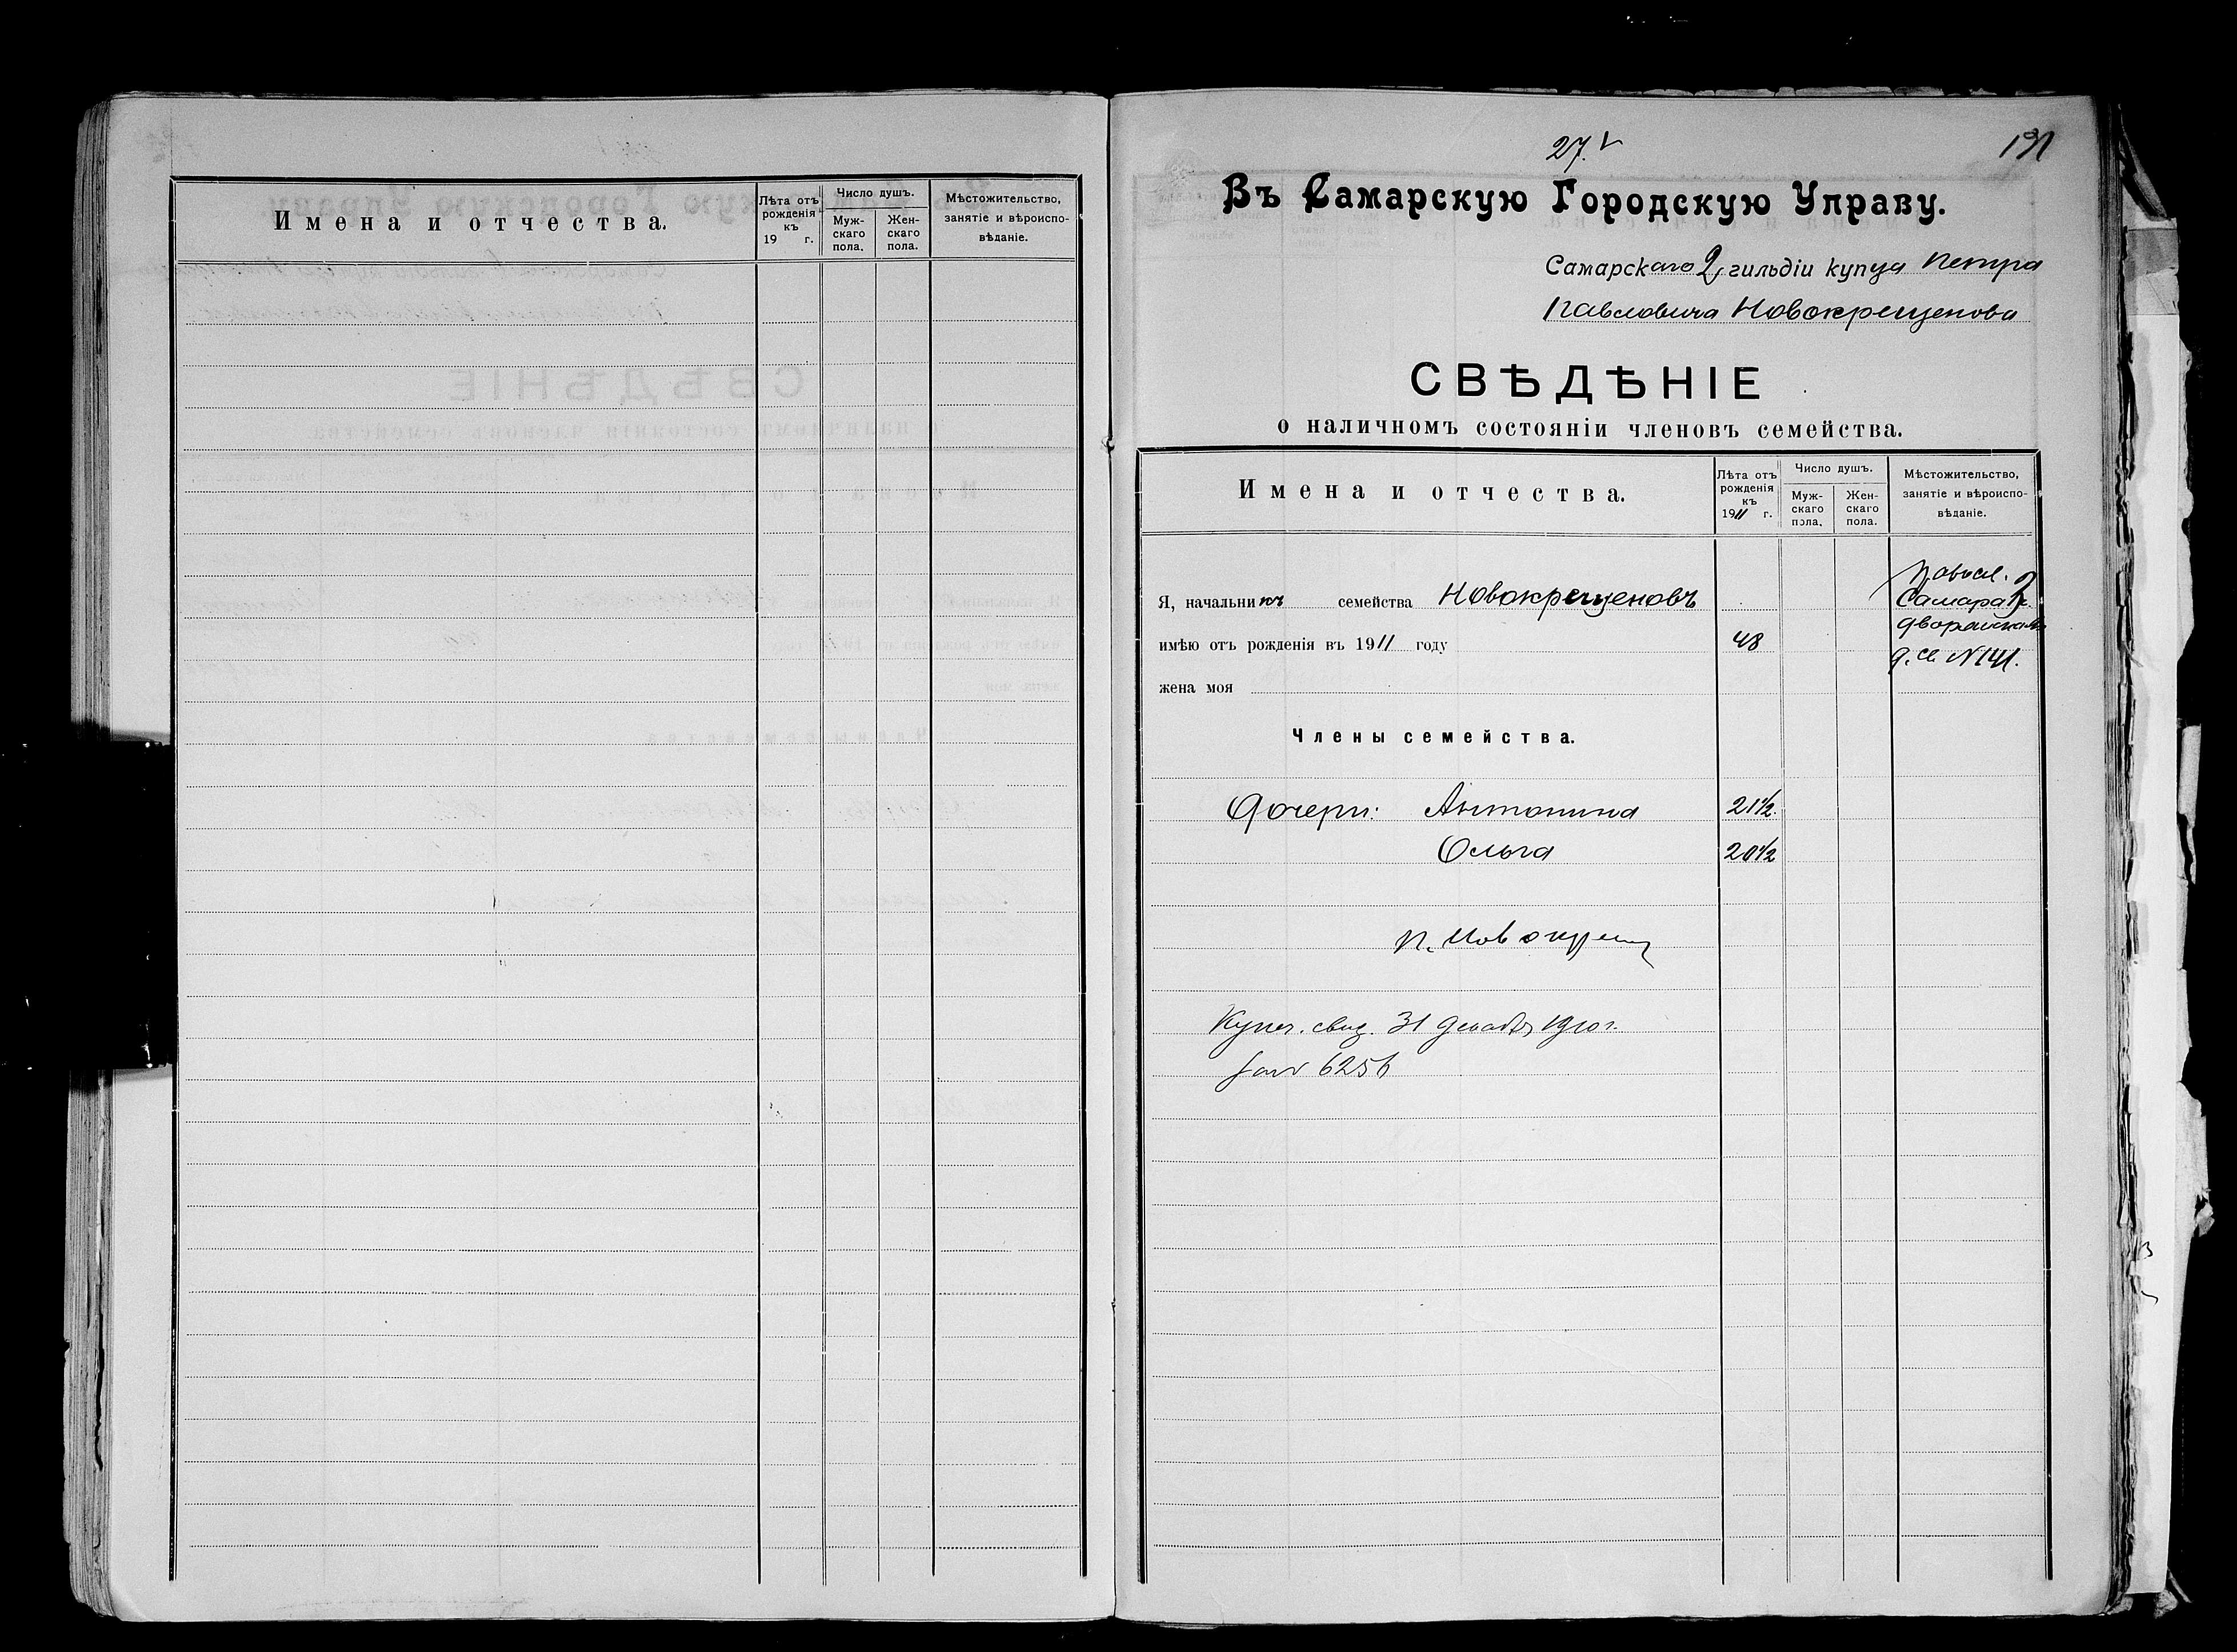 Имена и отчества.
Лѣта отъ рожденія къ 19 г.
Число душъ.
Мужскаго пола.
Женскаго пола.
Мѣстожительство, занятіе и вѣроисповѣданіе.
27.
191
Въ Самарскую Городскую Управу.
Самарскаго 2 гильдіи купца Петра
Павловича Новокрещенова
СВѢДѢНІЕ
о наличномъ состояніи членовъ семейства.
Имена и отчества.
Лѣта отъ рожденія къ 1911 г.
Число душъ.
Мужскаго пола.
Женскаго пола.
Мѣстожительство, занятіе и вѣроисповѣданіе.
Я, начальникъ семейства Новокрещеновъ
Самара
имѣю отъ рожденія въ 1911 году 48
Дворянская
д. № 141.
жена моя
Члены семейства.
Дочери: Антонина 21½.
Ольга 20½
П. Новокрещ
Купеч. свид. 31 декабря 1910 г.
за № 6256